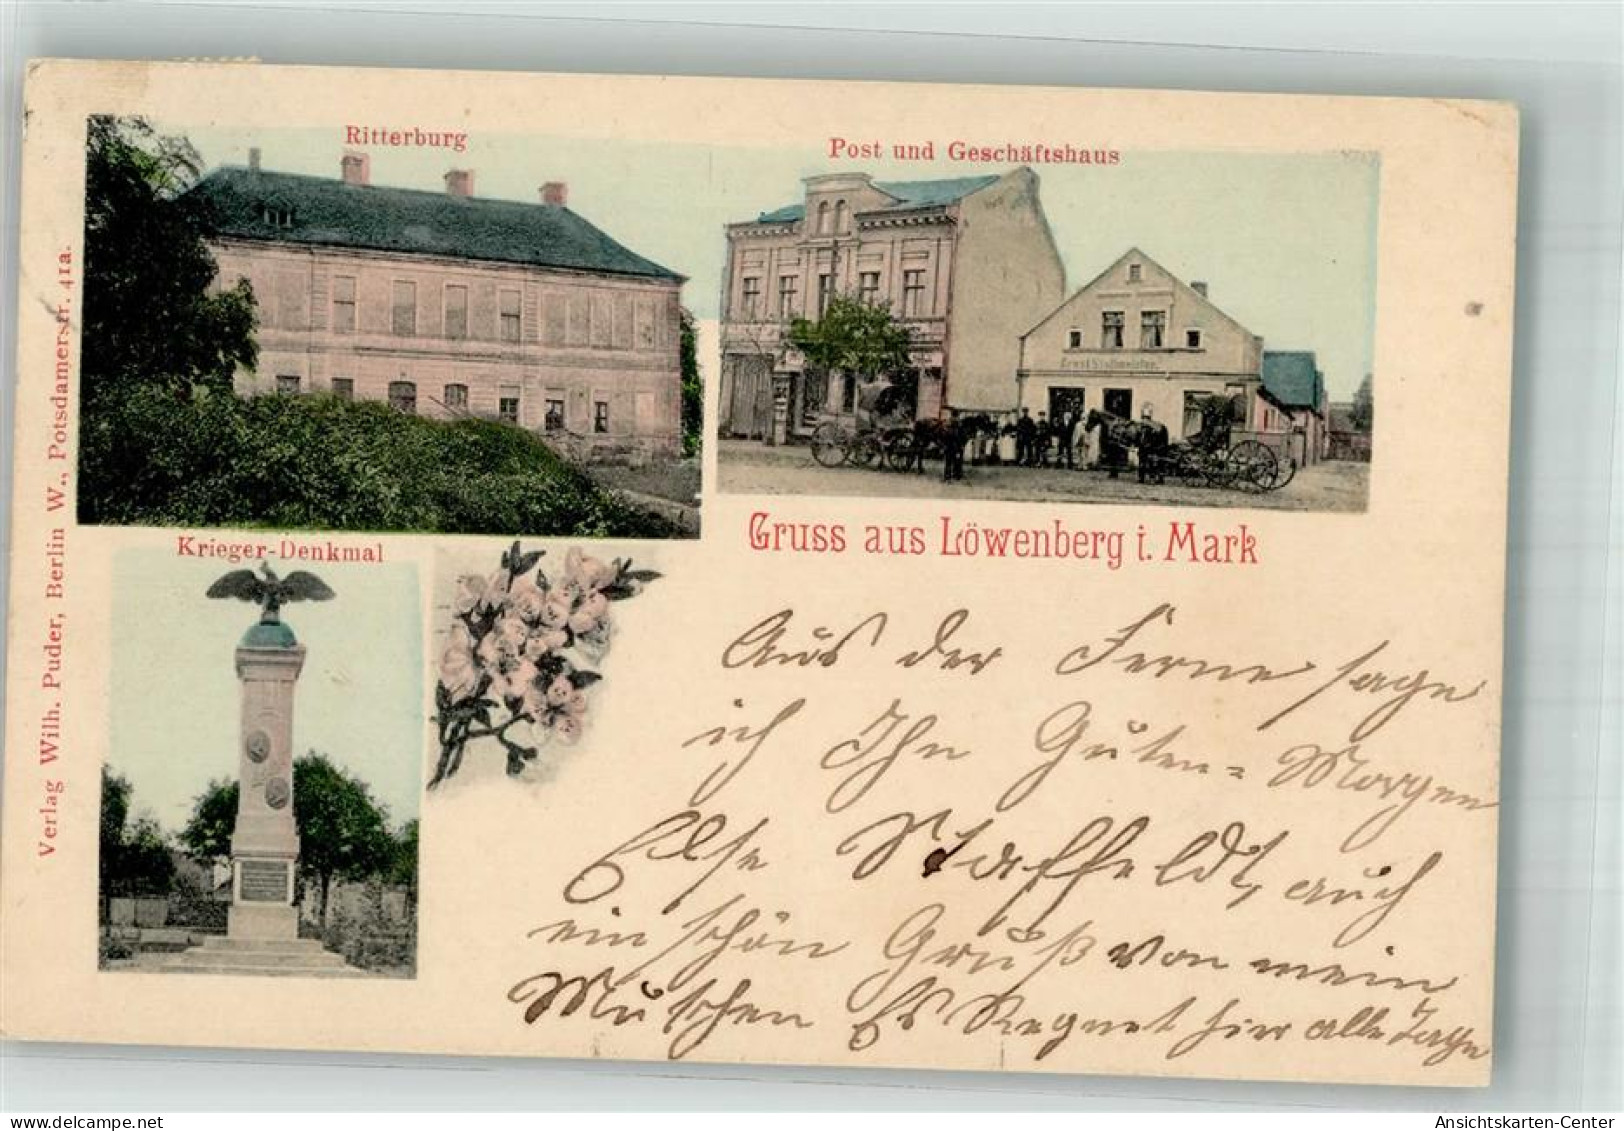 Ritterburg
Post und Geschäftshaus
Krieger-Denkmal
Gruss aus Löwenberg i. Mark
Verlag Wilh. Puder, Berlin W., Potsdamerstr. 41a.
Aus der Ferne sage
ich Ihn Guten=Morgen
Else Staffeldt, auch
ein schön Gruß von mein
Mutschen Es Regnet hier alle Tage
Ansichtskarten-Center